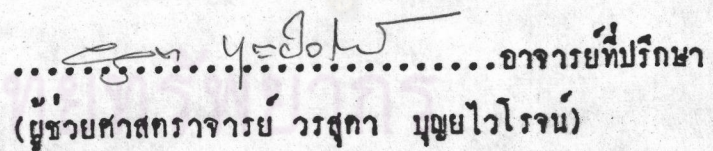 ................................อาจารย์ที่ปรึกษา
(ผู้ช่วยศาสตราจารย์ วรสุดา บุญยไวโรจน์)